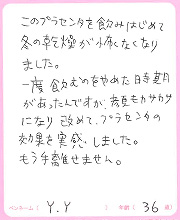 このプラセンタを飲みはじめて
冬の乾燥が怖くなくなり
ました。
一度飲むのをやめた時期
があったんですが、夜もカサカサ
になり改めて、プラセンタの
効果を実感しました。
もう手離せません。
ペンネーム（ Y.Y ） 年齢（ 36 歳）